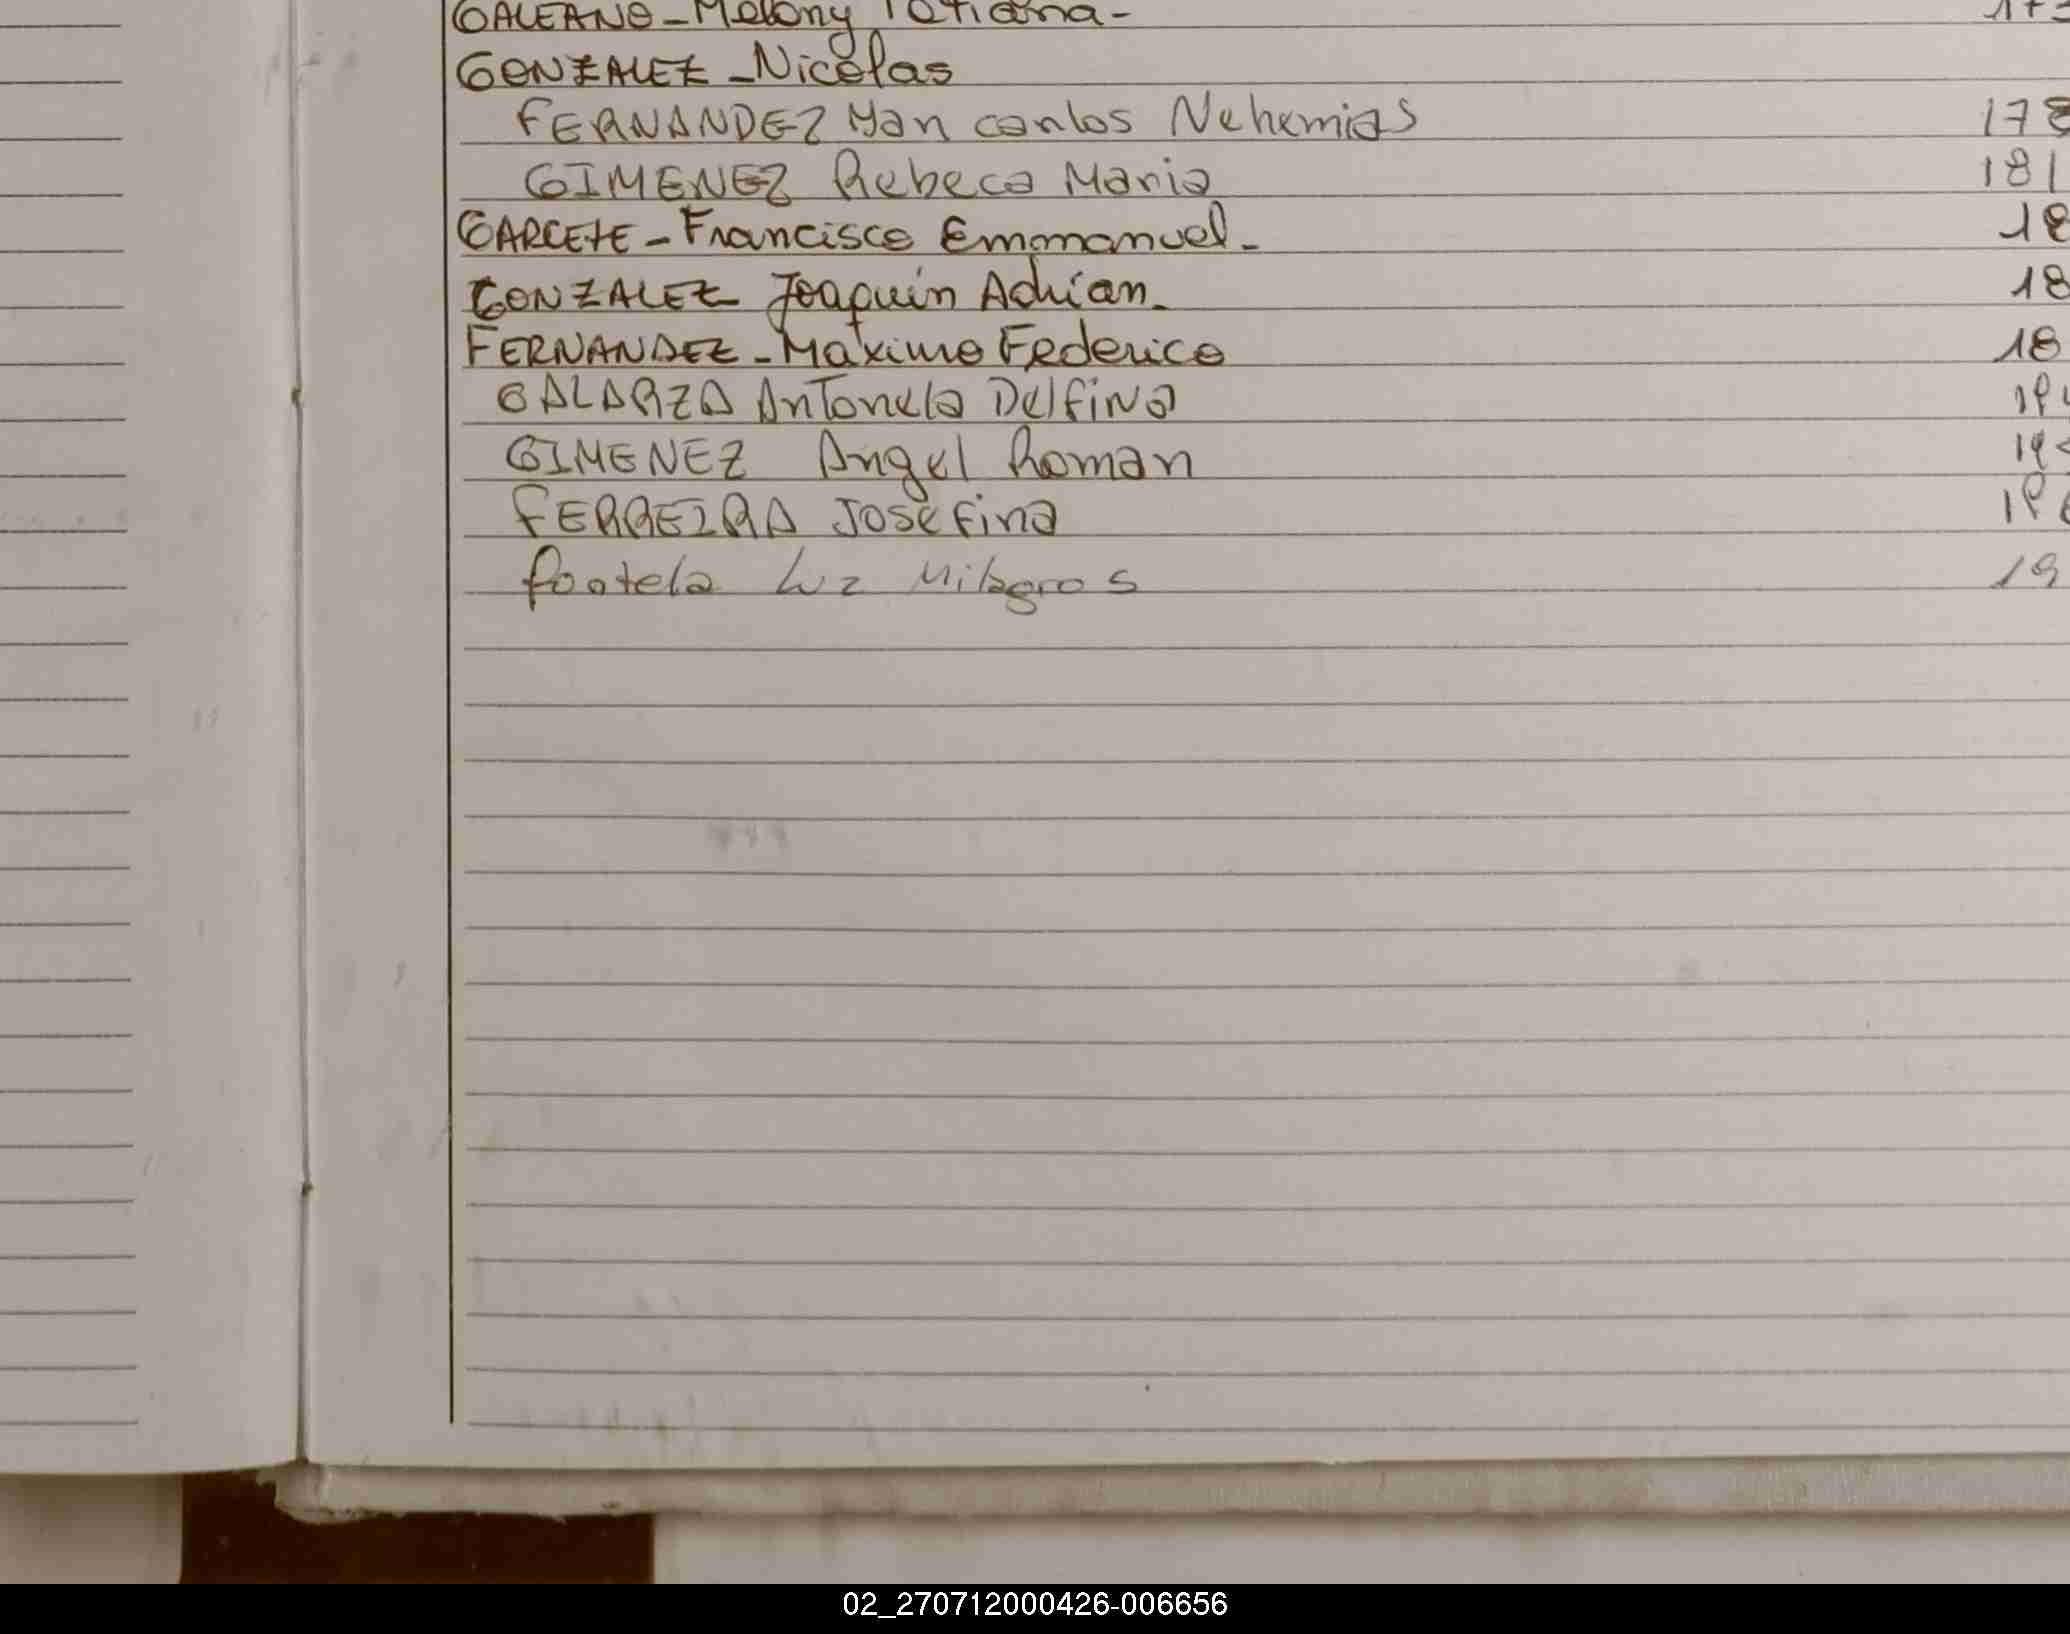 GALEANO - Melany Tatiana - 17
GONZALEZ - Nicolas
FERNANDEZ Yan carlos Nehemias 178
GIMENEZ Rebeca Maria 181
GARCETE - Francisco Emmanuel - 18
GONZALEZ Joaquin Adrian - 18
FERNANDEZ - Maximo Federico 18
GALARZA Antonela Delfina 19
GIMENEZ Angel Roman 19
FERREIRA Josefina 19
Luz Milagros 19
02_270712000426-006656